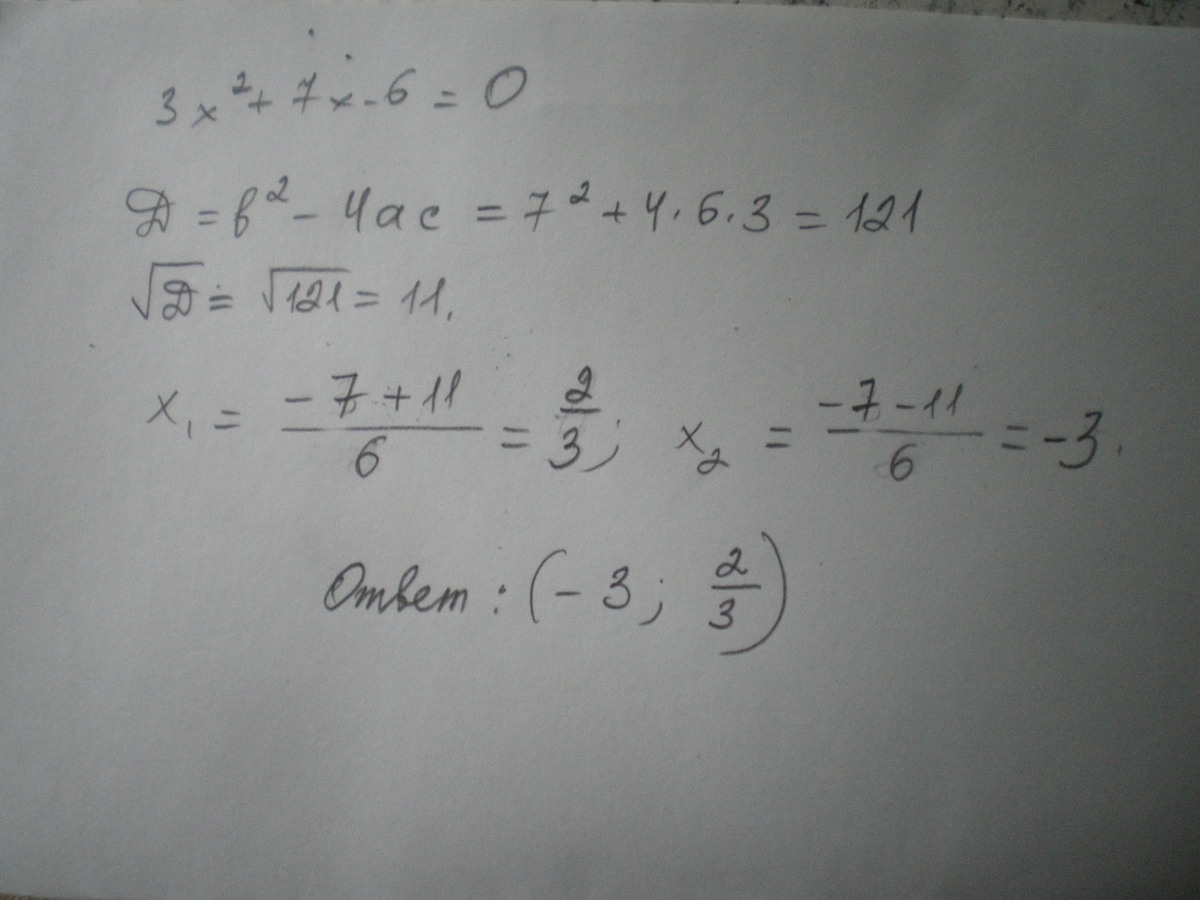 3x² + 7x - 6 = 0
Д = в² - 4ас = 7² + 4·6·3 = 121
√Д = √121 = 11.
x₁ = (-7 + 11)/6 = 2/3; x₂ = (-7 - 11)/6 = -3.
Ответ: (-3; 2/3)